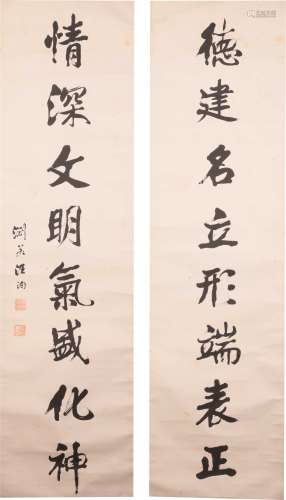 德建名立形端表正
情深文明氣盛化神
汪洵